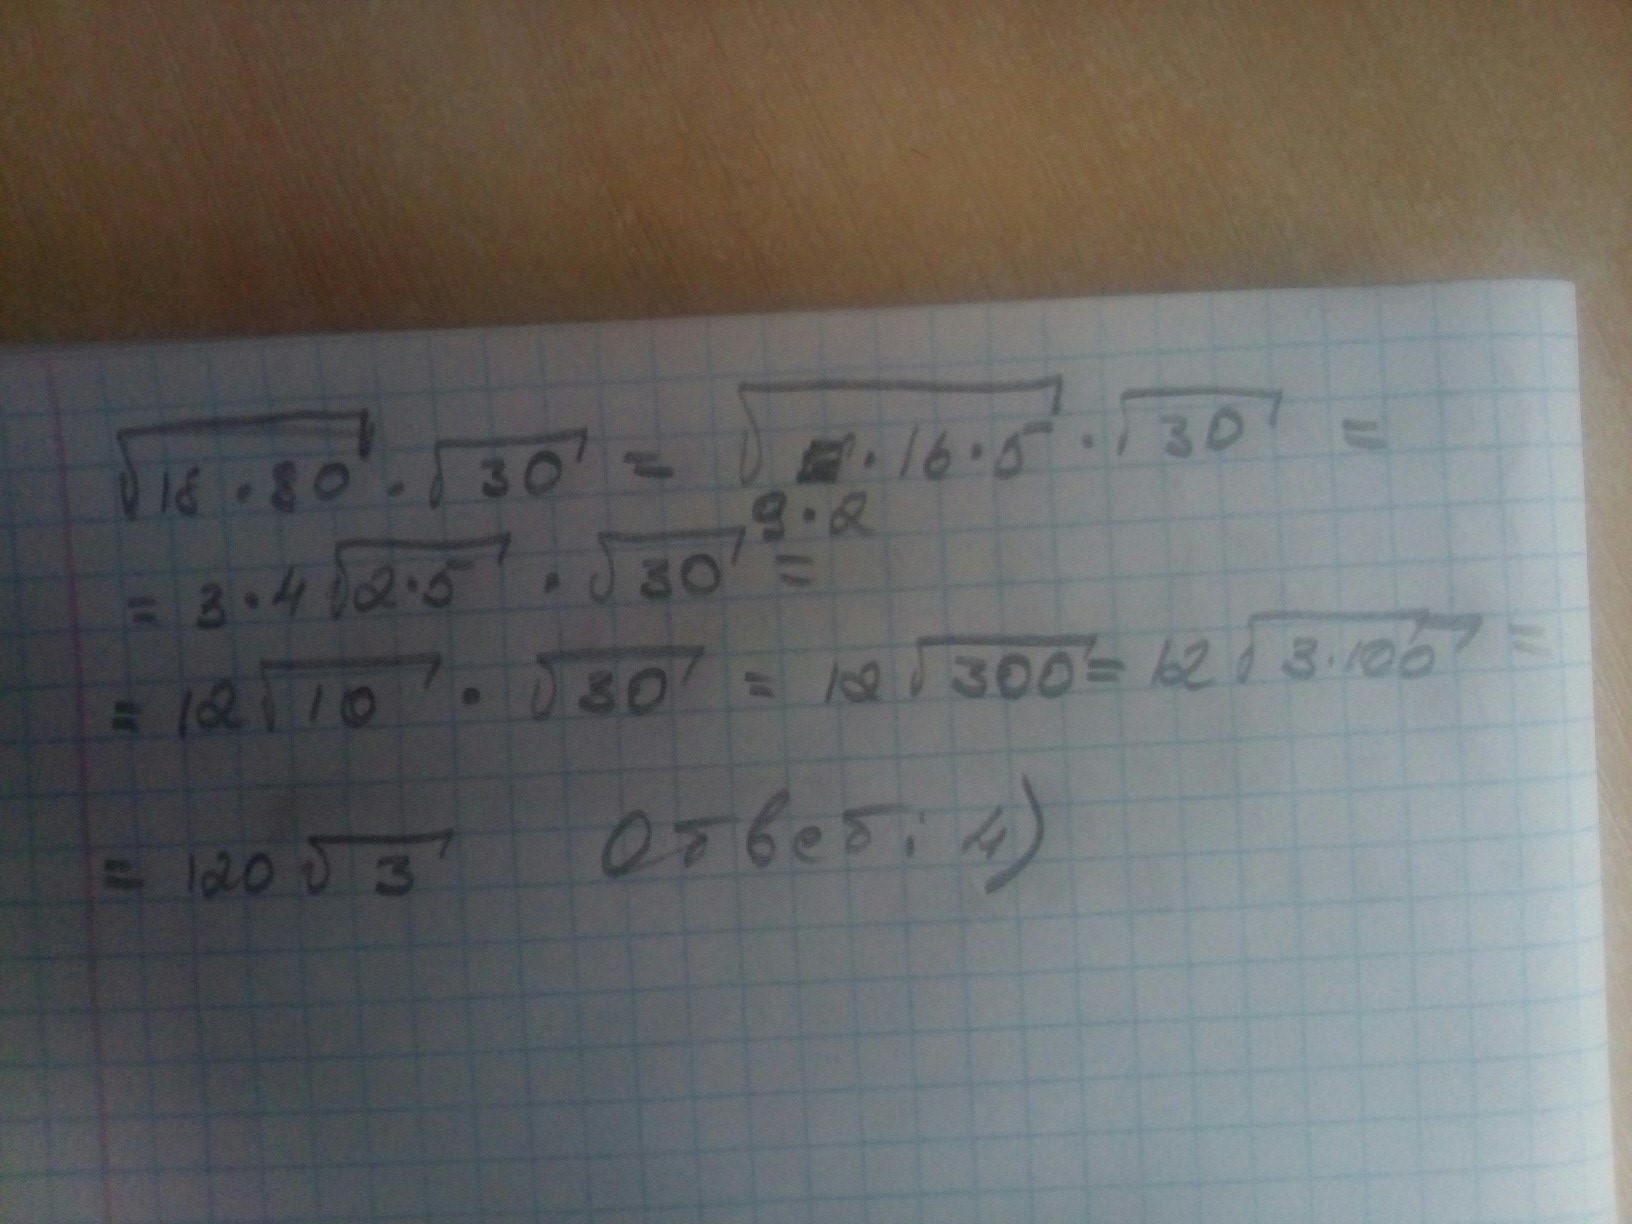 √18·80 · √30 = √ ·16·5 · √30 =
9·2
= 3·4√2·5 · √30 =
= 12√10 · √30 = 12√300 = 12√3·100 =
= 120√3 Ответ: 4)